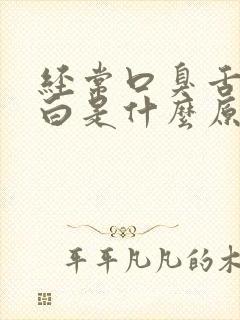 经常口臭舌
白是什麽原
平平凡凡的木